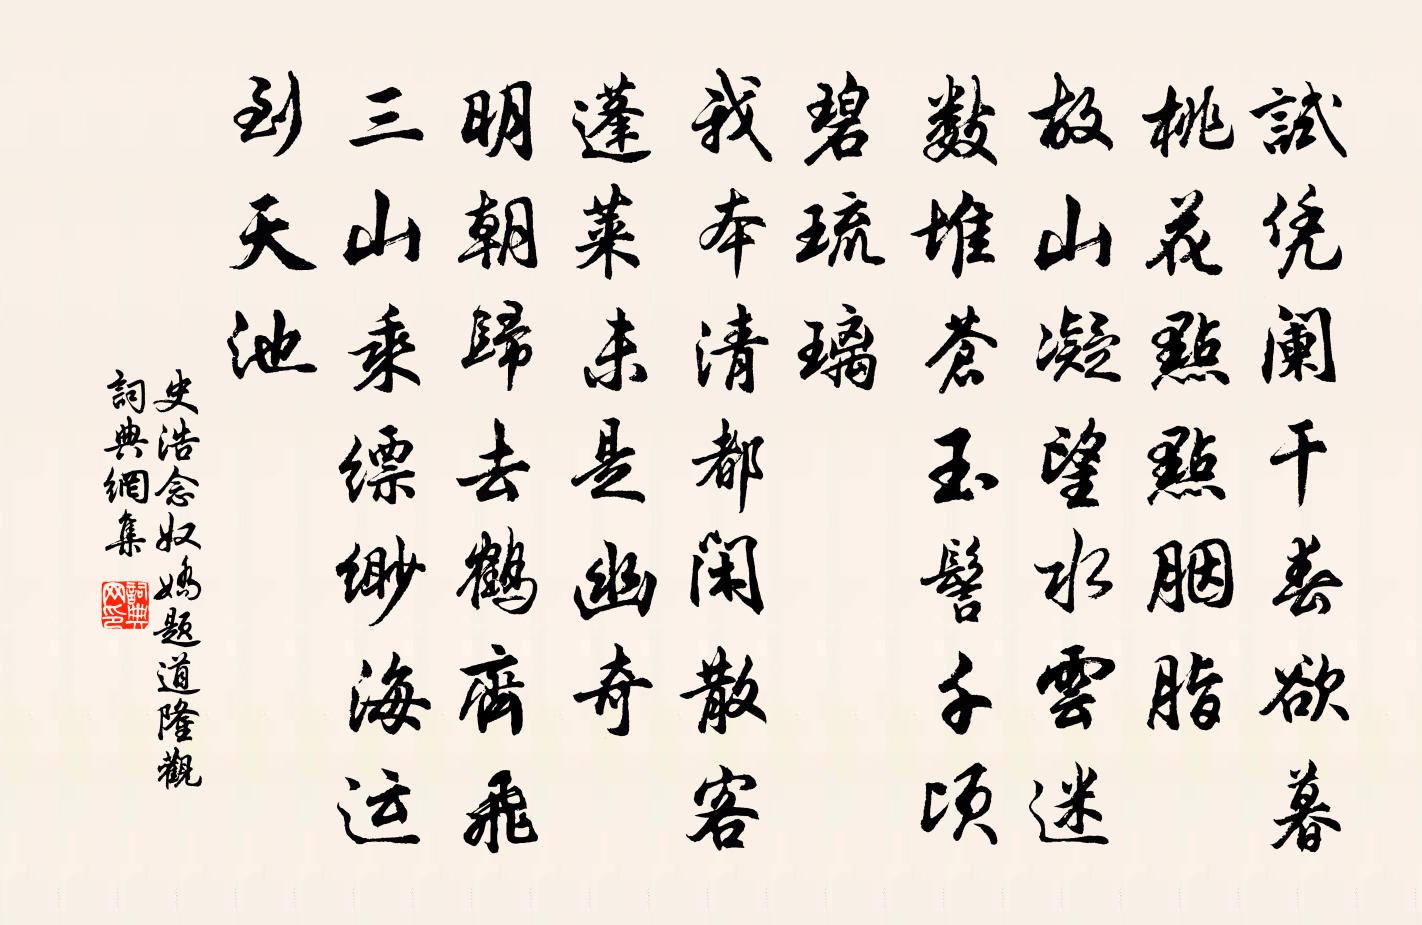 試凭阑干春欲暮
桃花點點胭脂
故山凝望水雲迷
數堆蒼玉髻千頃
碧琉璃
我本清都閑散客
蓬莱未是幽奇
明朝歸去鶴齊飛
三山乘缥缈海运
到天池
史浩念奴嬌題道隆觀
詞典網集
詞典网印